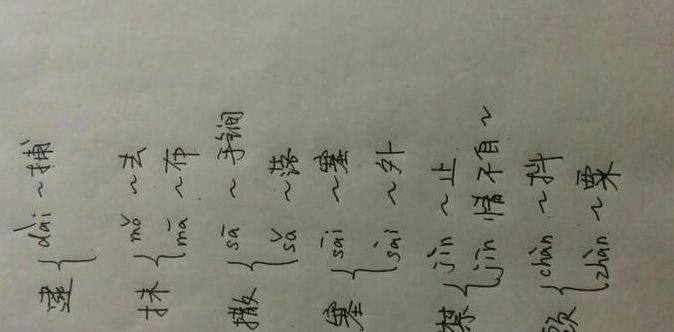 逮 { dài ~捕
抹 { mǒ ~去
mā ~布
撒 { sā ~手锏
sǎ ~落
塞 { sāi ~塞
sài ~外
禁 { jìn ~止
jīn 情不自~
{ chàn ~抖
zhàn ~栗